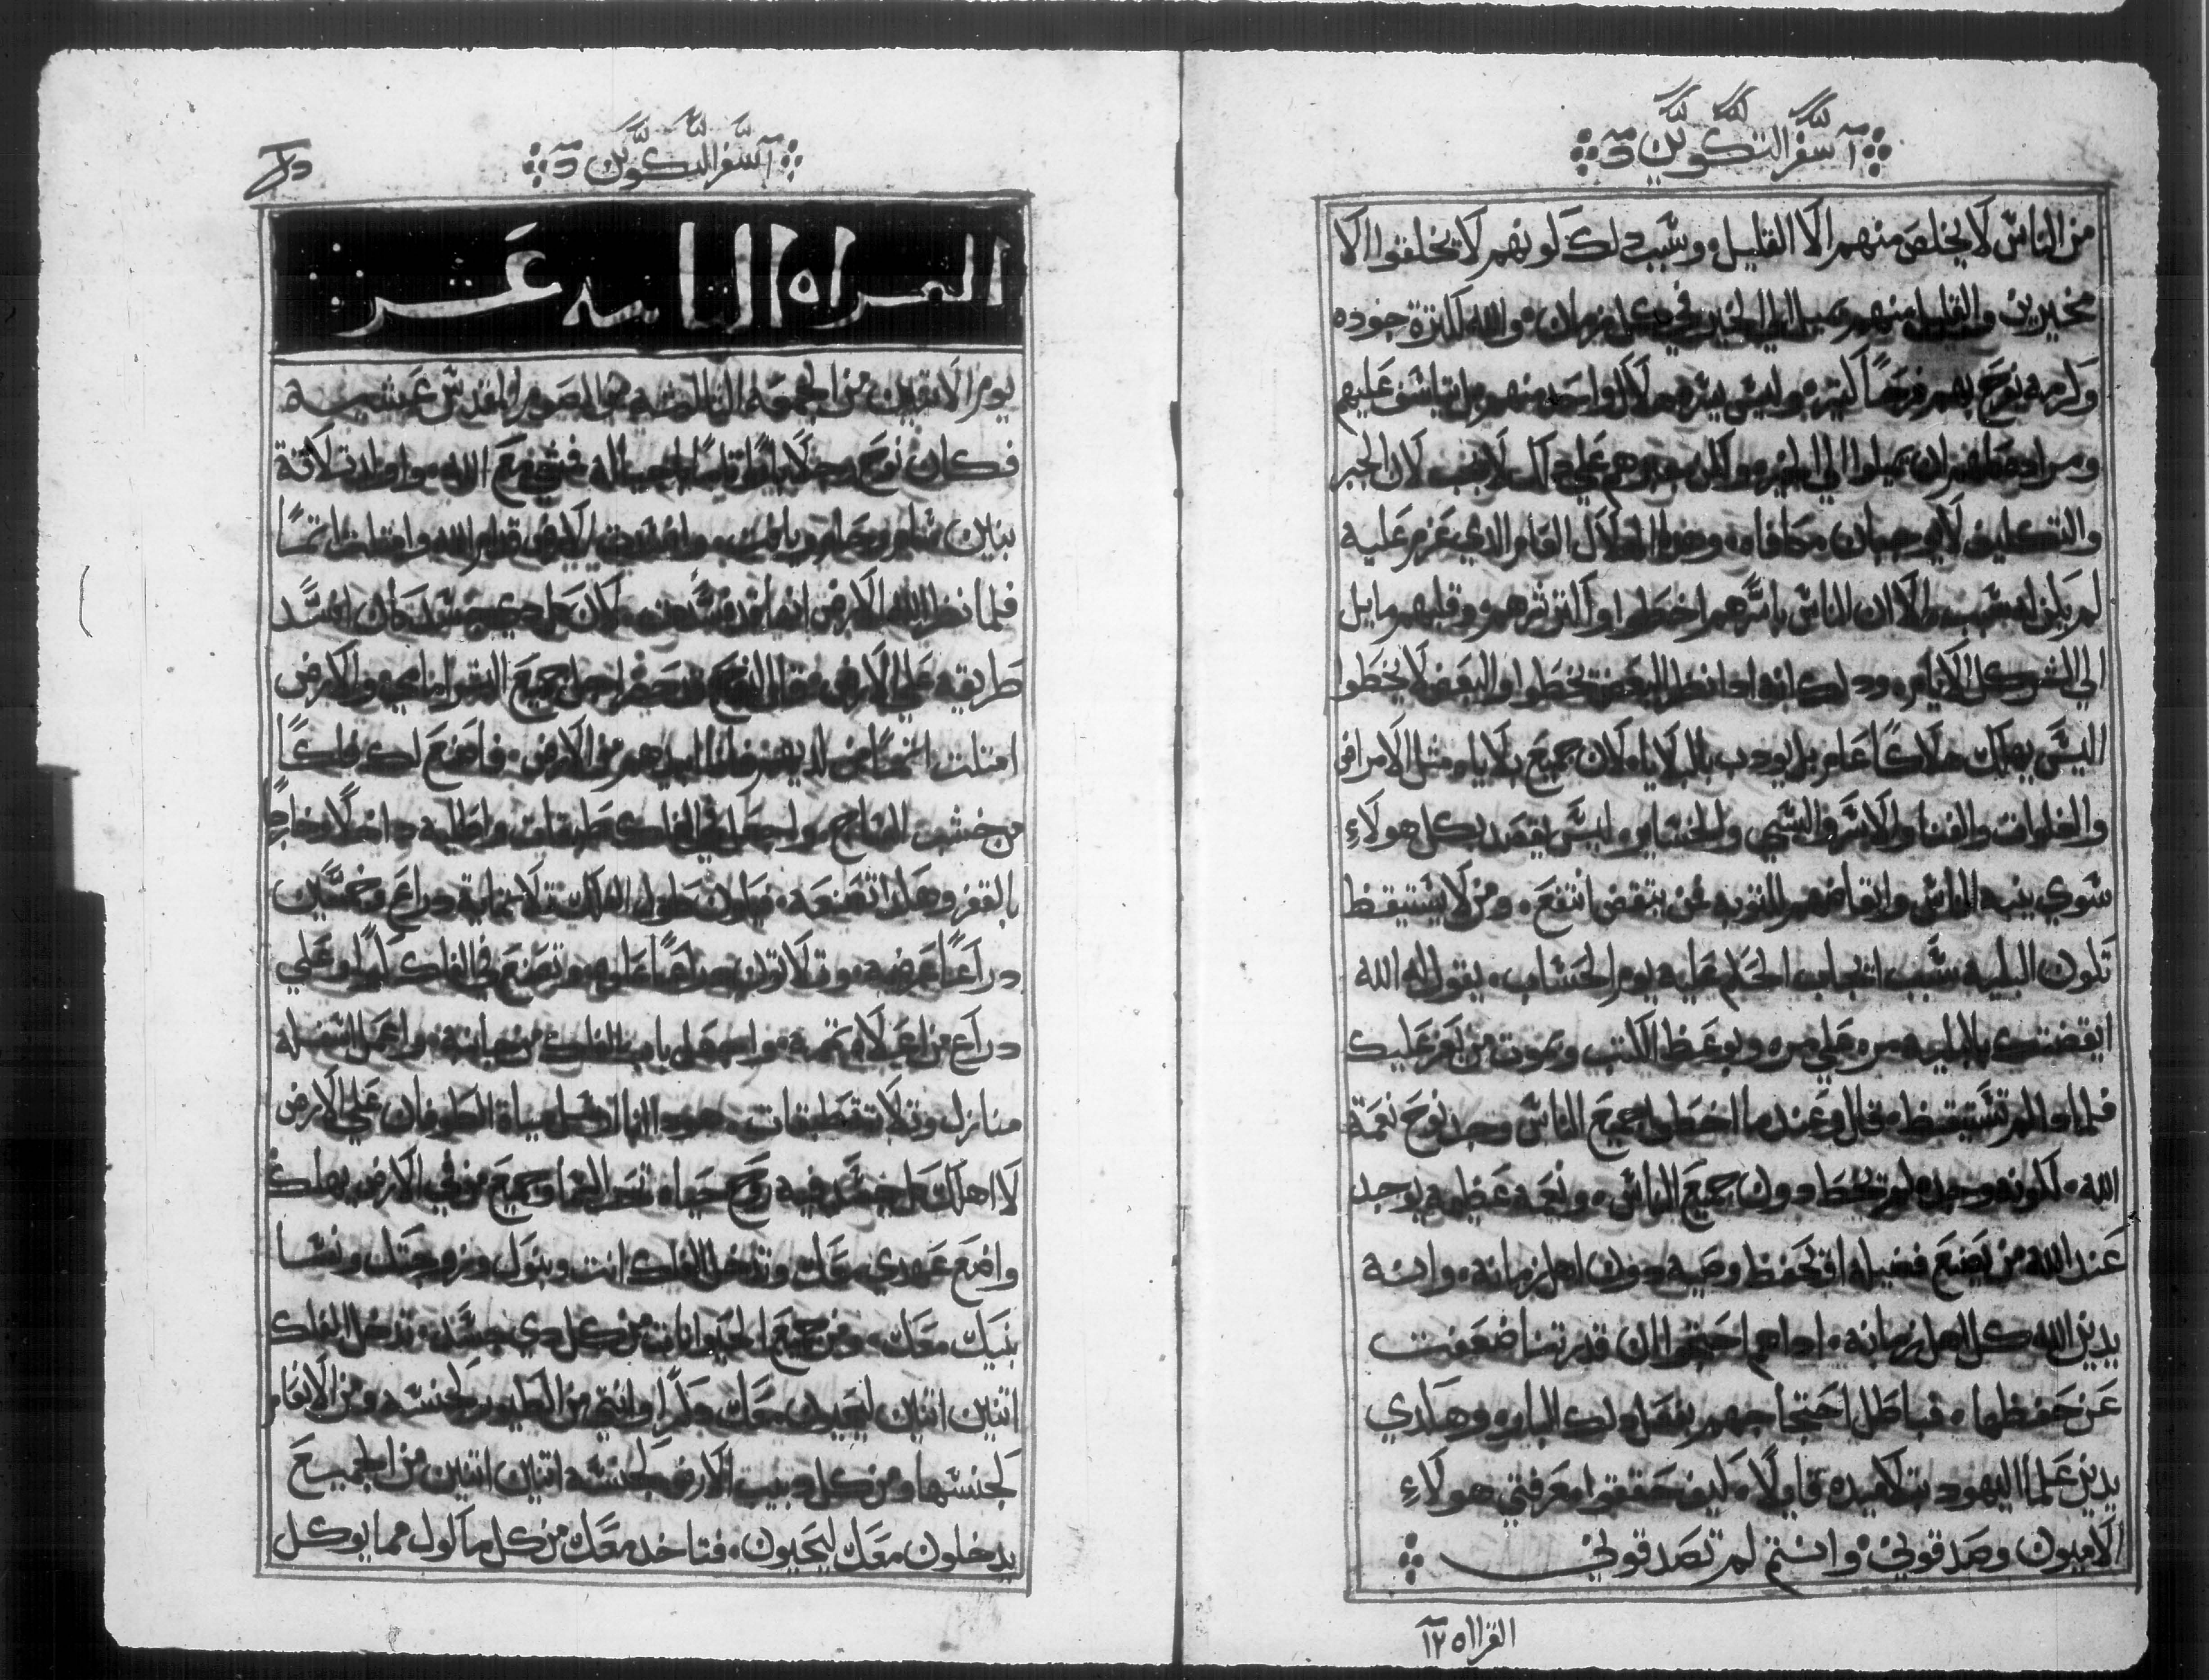 سفر التكوين
من الناس لا يخلص منهم الا القليل وسبب دلك لونهم لا يخلقوا الا
مخيرين والقليل منهم يميل الي الخير في كل زمان والله لكترة جوده
وكرمه يفرح بهم فرحًا كتير وليس يتره هلاك واحد منهم بل يتاسف عليهم
ومراده ان يميلوا الي الخير ولكن علي دلك لا يجب لان الجبر
والتكليف لا يوجبان مكافاه وهدا الهلاك العام الدي عزم عليه
لم يكن بسبب الا ان الناس باسرهم اخطوا واكترترهم وقلبهم مايل
الي الشر كل الايام ودلك انه ادا نظر البعض يخطوا والبعض لا يخطوا
اليس يهلك هلاكًا عام بل يودب بالبلايا لان جميع بلايا متل الامراض
والغلوات والفنا والاسر والسبي والخساير ليس يقصد بكل هولاء
سوي ينبه الناس وايقاضهم للتوبه فمن يتقض انتفع ومن لا يستيقظ
تكون البليه سبب اتجاب الحكم عليه يوم الحساب يقول له الله
ايقضتك بالبليه مره علي مره وبوعظ الكتب وبموت من يعز عليك
فلمادا لم تستيقظ قال وعندما اخطوا جميع الناس وجد نوح نعمة
الله لكونه وحده لم يخط دون جميع الناس ونعمه عظيمه يوجد
عند الله من يصنع فضيله او يحفظ وصيه دون اهل زمانه وانه
يدين الله كل اهل زمانه ادا هم احتجوا ان قدرتنا ضعفت
عن حفظها فباطل احتجاجهم بفعل دلك البار وهكدي
يدين علما اليهود بتلاميده قايلا كيف حققوا معرفتي هولاء
الاميون وصدقوني وانتم لم تصدقوني
القراه ١٢
سفر التكوين
القراه التانيه عشر
يوم الاتنين من الجمعه التالته من الصوم المقدس عشيه
فكان نوح رجلا بارًا تامًا في اجياله فمشي نوح مع الله واولد تلاتة
بنين سام وحام ويافت وافسدت الارض قدام الله وامتلت اتمًا
فلما نظر الله الارض انها قد فسدت لان كل دي جسد كان افسد
طريقه علي الارض فقال لنوح قد حضر اجل جميع البشر امامي والارض
امتلت اتمًا من لديهم فانا ابيدهم من الارض فاصنع لك فلكًا
من خشب الساج واجعل في الفلك طبقات واطليه داخلا وخارج
بالقفر وهكدا تصنعه فيكون طول الفلك تلاتماية دراع وخمسين
دراعًا عرضه وتلاتون دراعًا علوه وتصنع في الفلك كوا وعلي
دراع من اعلاه تتمه واجعل باب الفلك من جانبه واعمل اسفله
منازل وتلاتة طبقات هودا انا ادخل مياة الطوفان علي الارض
لا اهلك كل جسد فيه روح حياه تحت السما وجميع من في الارض يهلك
واضع عهدي معك وتدخل الفلك انت وبنوك وزوجتك ونسا
بنيك معك ومن جميع الحيوانات من كل دي جسد تدخل الفلك
اتنين اتنين ليحيون معك دكرًا وانتي من الطيور لجنسه ومن الانعام
لجنسها ومن كل دبيب الارض لجنسه اتنين اتنين من الجميع
يدخلون معك ليحيون فتاخد معك من كل ماكول مما يوكل